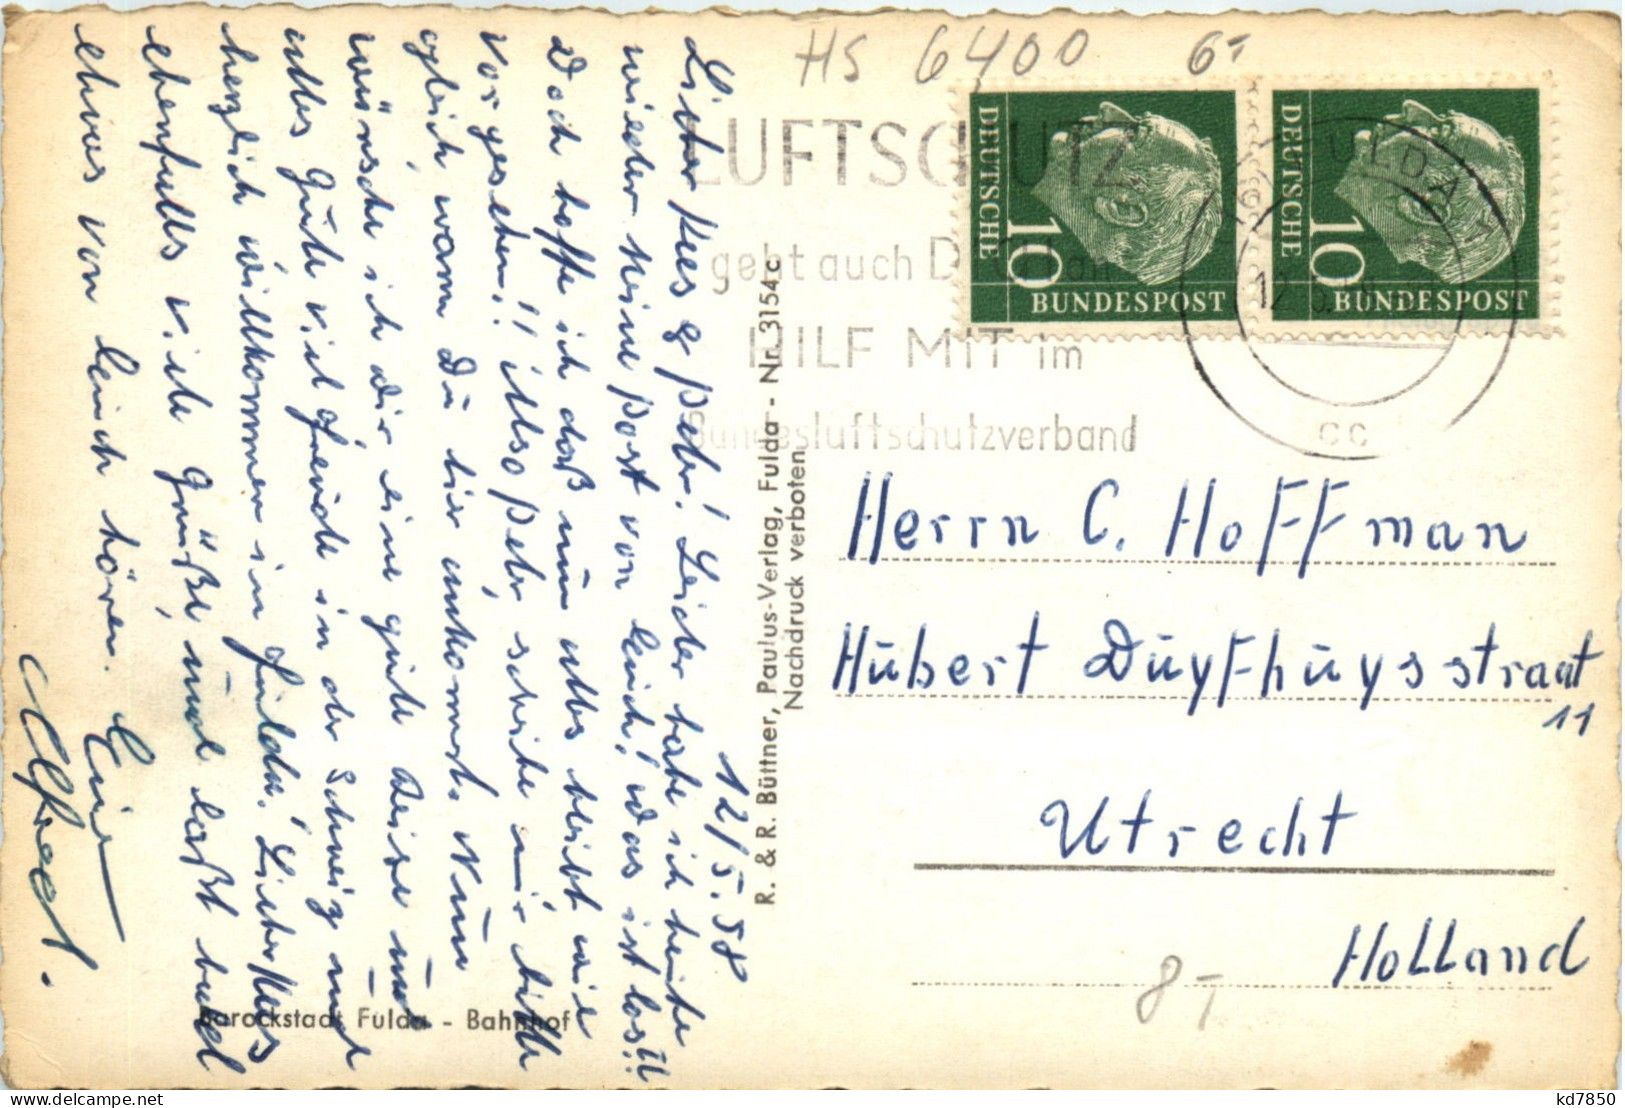 HS 6400 6,-
LUFTSCHUTZ
geht auch Dich an
HILF MIT im
Bundesluftschutzverband
DEUTSCHE
10
BUNDESPOST
DEUTSCHE
10
BUNDESPOST
FULDA 1
12.5.
cc
12/5.58
Lieber Kees & Peter! Leider habe ich heute
wieder keine Post von Euch! Was ist los!!
Doch hoffe ich daß nun alles bleibt wie
vorgesehen!! Also Peter schreibe mir bitte
gleich, wann Du hier ankommst. Nun
wünsche ich Dir eine gute Reise und
alles Gute viel Freude in der Schweiz und
herzlich willkommen in Fulda! Lieber Kees
ebenfalls viele Grüße, und laßt bald
etwas von Euch hören. Euer
Alfred.
R. & R. Büttner, Paulus-Verlag, Fulda - Nr. 3154 c
Nachdruck verboten
Barockstadt Fulda - Bahnhof
Herrn C. Hoffman
Hubert Duyfhuysstraat
11
Utrecht
Holland
8,-
kd7850